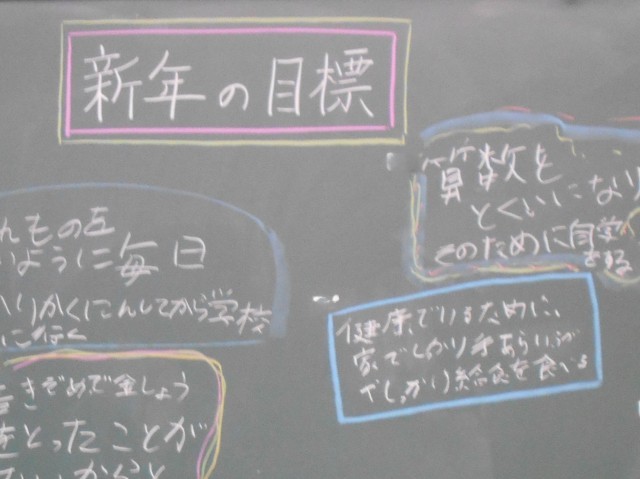 新年の目標
算数を
とくいになり
そのために自学
をする
んもの左
ように毎日
りかくにんしてから学校
に行く
健康でいるために、
家でしかり手あらいうが
でしっかり給食を食べる
きぞめで金しょう
をとったことが